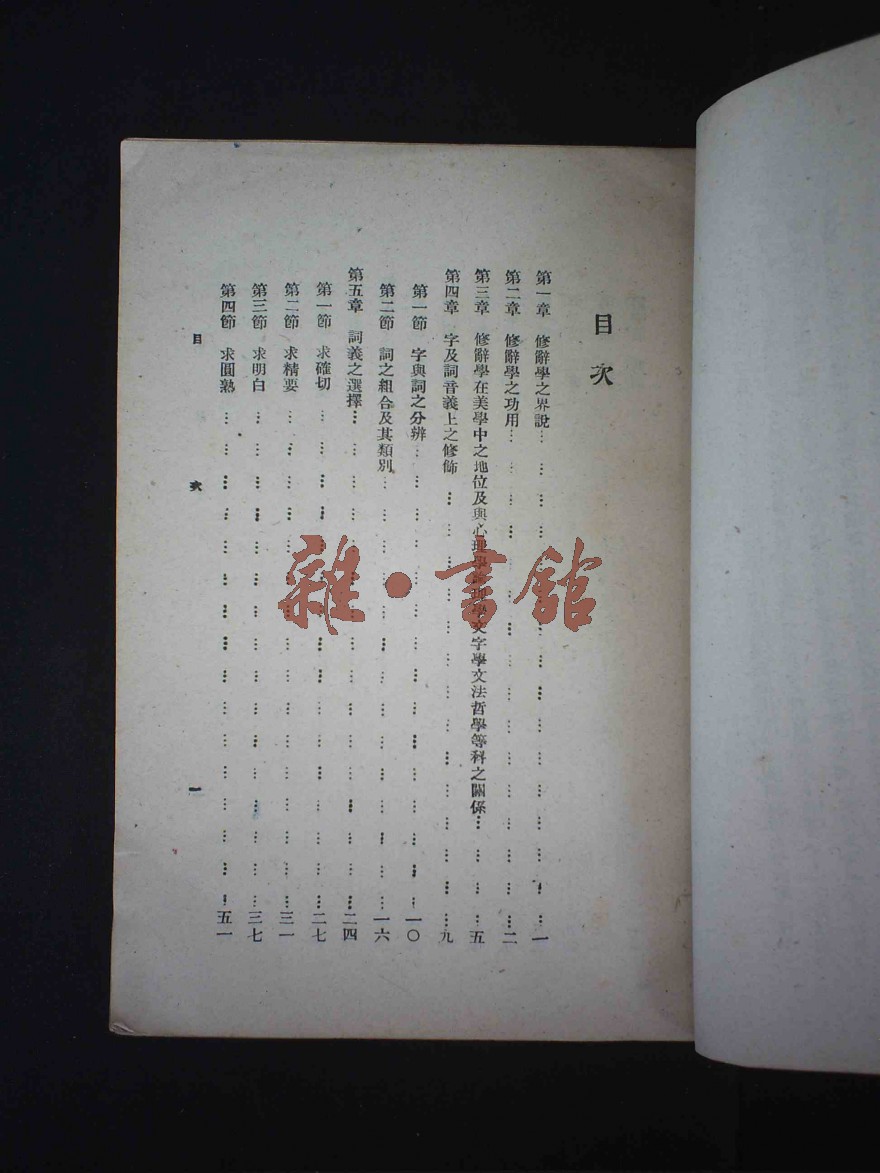 目次
第一章 修辭學之界說……一
第二章 修辭學之功用……二
第三章 修辭學在美學中之地位及與心理學論理學文字學文法哲學等科之關係……五
第四章 字及詞音義上之修飾……九
第一節 字與詞之分辨……一〇
第二節 詞之組合及其類別……一六
第五章 詞義之選擇……二四
第一節 求確切……二七
第二節 求精要……三一
第三節 求明白……三七
第四節 求圓熟……五一
目次 一
雜·書館